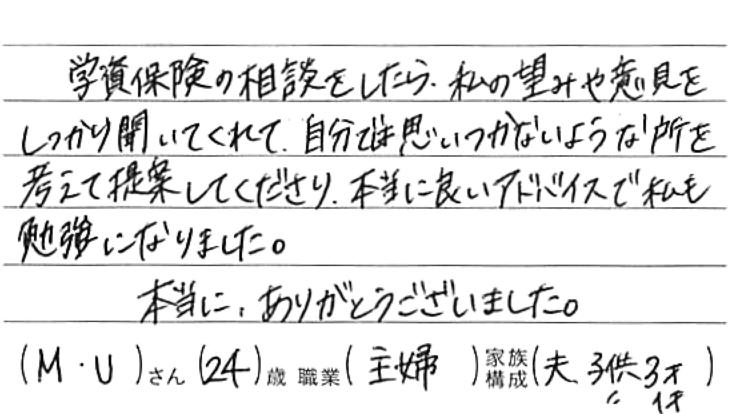 学資保険の相談をしたら、私の望みや意見を
しっかり聞いてくれて、自分では思いつかないような所を
考えて提案してくださり、本当に良いアドバイスで私も
勉強になりました。
本当に、ありがとうございました。
(M・U)さん(24)歳 職業(主婦)家族構成(夫、子供3才
〃 1才)